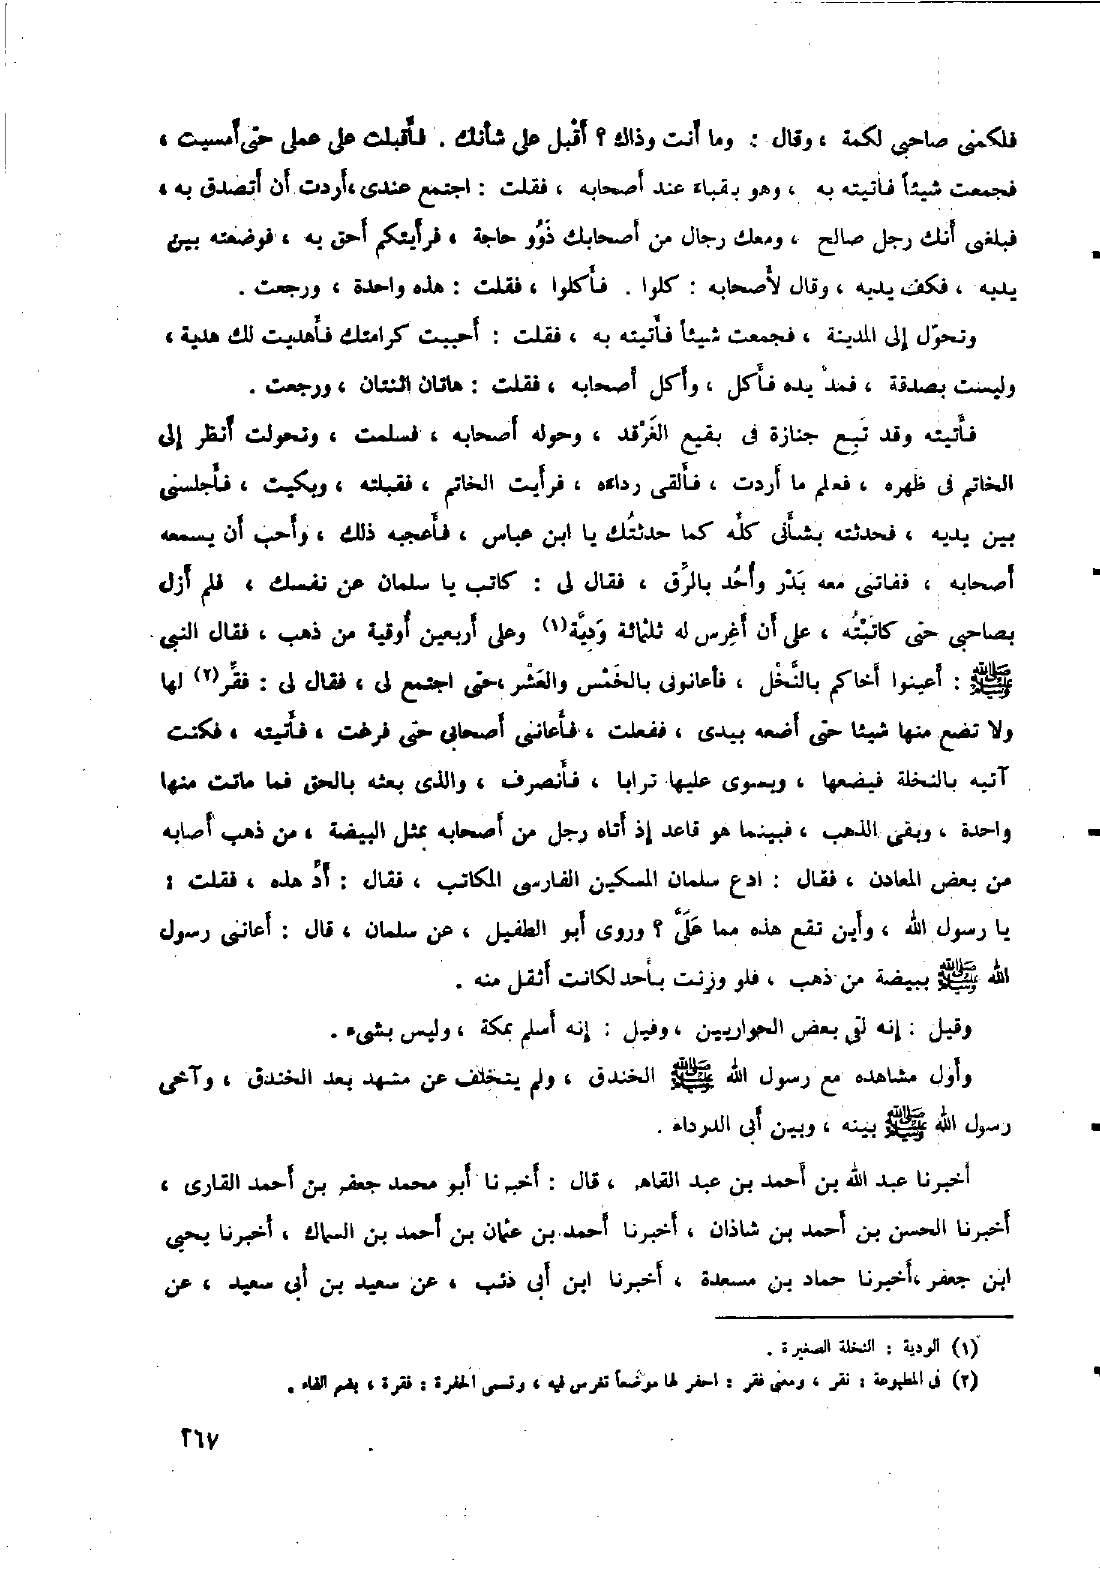 فلكمنى صاحبى لكمة ، وقال : وما أنت وذاك ؟ أقْبل على شأنك . فأقبلت على عملى حتى أمسيت ،
فجمعت شيئاً فأتيته به ، وهو بقباء عند أصحابه ، فقلت : اجتمع عندى ،أردت أن أتصدق به ،
فبلغى أنك رجل صالح ، ومعك رجال من أصحابك ذَوُو حاجة ، فرأيتكم أحق به ، فوضعته بين
يديه ، فكف يديه ، وقال لأصحابه : كلوا . فأكلوا ، فقلت : هذه واحدة ، ورجعت .
وتحوّل إلى المدينة ، فجمعت شيئاً فأتيته به ، فقلت : أحببت كرامتك فأهديت لك هدية ،
وليست بصدقة ، فمدّ يده فأكل ، وأكل أصحابه ، فقلت : هاتان اثنتان ، ورجعت .
فأتيته وقد تَبِع جنازة فى بقيع الغَرْقد ، وحوله أصحابه ، فسلمت ، وتحولت أنظر إلى
الخاتم فى ظهره ، فعلم ما أردت ، فألقى رداءه ، فرأيت الخاتم ، فقبلته ، وبكيت ، فأجلسنى
بين يديه ، فحدثته بشأنى كلّه كما حدثتُك يا ابن عباس ، فأعجبه ذلك ، وأحب أن يسمعه
أصحابه ، ففاتنى معه بَدْر وأُحُد بالرِّق ، فقال لى : كاتب يا سلمان عن نفسك ، فلم أزل
بصاحبى حتى كاتَبْتُه ، على أن أغرِس له ثلثمائة وَدِيَّة(١) وعلى أربعين أُوقية من ذهب ، فقال النبى
ﷺ : أعينوا أخاكم بالنَّخْل ، فأعانونى بالخَمْس والعَشْر ،حتى اجتمع لى ، فقال لى : فقِّر(٢) لها
ولا تضع منها شيئا حتى أضعه بيدى ، ففعلت ، فأعاننى أصحابى حتى فرغت ، فأتيته ، فكنت
آتيه بالنخلة فيضعها ، ويسوى عليها ترابا ، فأنصرف ، والذى بعثه بالحق فما ماتت منها
واحدة ، وبقى الذهب ، فبينما هو قاعد إذ أتاه رجل من أصحابه بمثل البيضة ، من ذهب أصابه
من بعض المعادن ، فقال : ادع سلمان المسكين الفارسى المكاتب ، فقال : أدِّ هذه ، فقلت :
يا رسول الله ، وأين تقع هذه مما عَلَىَّ ؟ وروى أبو الطفيل ، عن سلمان ، قال : أعاننى رسول
الله ﷺ ببيضة من ذهب ، فلو وزنت بأحد لكانت أثقل منه .
وقيل : إنه لتى بعض الحواريين ، وقيل : إنه أسلم بمكة ، وليس بشىء .
وأول مشاهده مع رسول الله ﷺ الخندق ، ولم يتخلف عن مشهد بعد الخندق ، وآخى
رسول الله ﷺ بينه ، وبين أبى الدرداء .
أخبرنا عبد الله بن أحمد بن عبد القاهر ، قال : أخبرنا أبو محمد جعفر بن أحمد القارى ،
أخبرنا الحسن بن أحمد بن شاذان ، أخبرنا أحمد بن عثمان بن أحمد بن السماك ، أخبرنا يحيى
ابن جعفر ،أخبرنا حماد بن مسعدة ، أخبرنا ابن أبى ذئب ، عن سعيد بن أبى سعيد ، عن
(١) الودية : النخلة الصغيرة .
(٢) فى المطبوعة : نقر ، ومعنى فقر : احفر لها موضعاً تغرس فيه ، وتسمى الحفرة : فقرة ، بضم الفاء .
٢٦٧